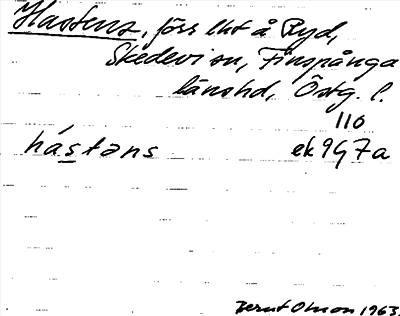 Hastens, förs lht å Ryd,
Skedevi sn, Finspånga
länshd, Östg. l.
110
hástəns ek 9G7a
Bernt Olsson 1963.